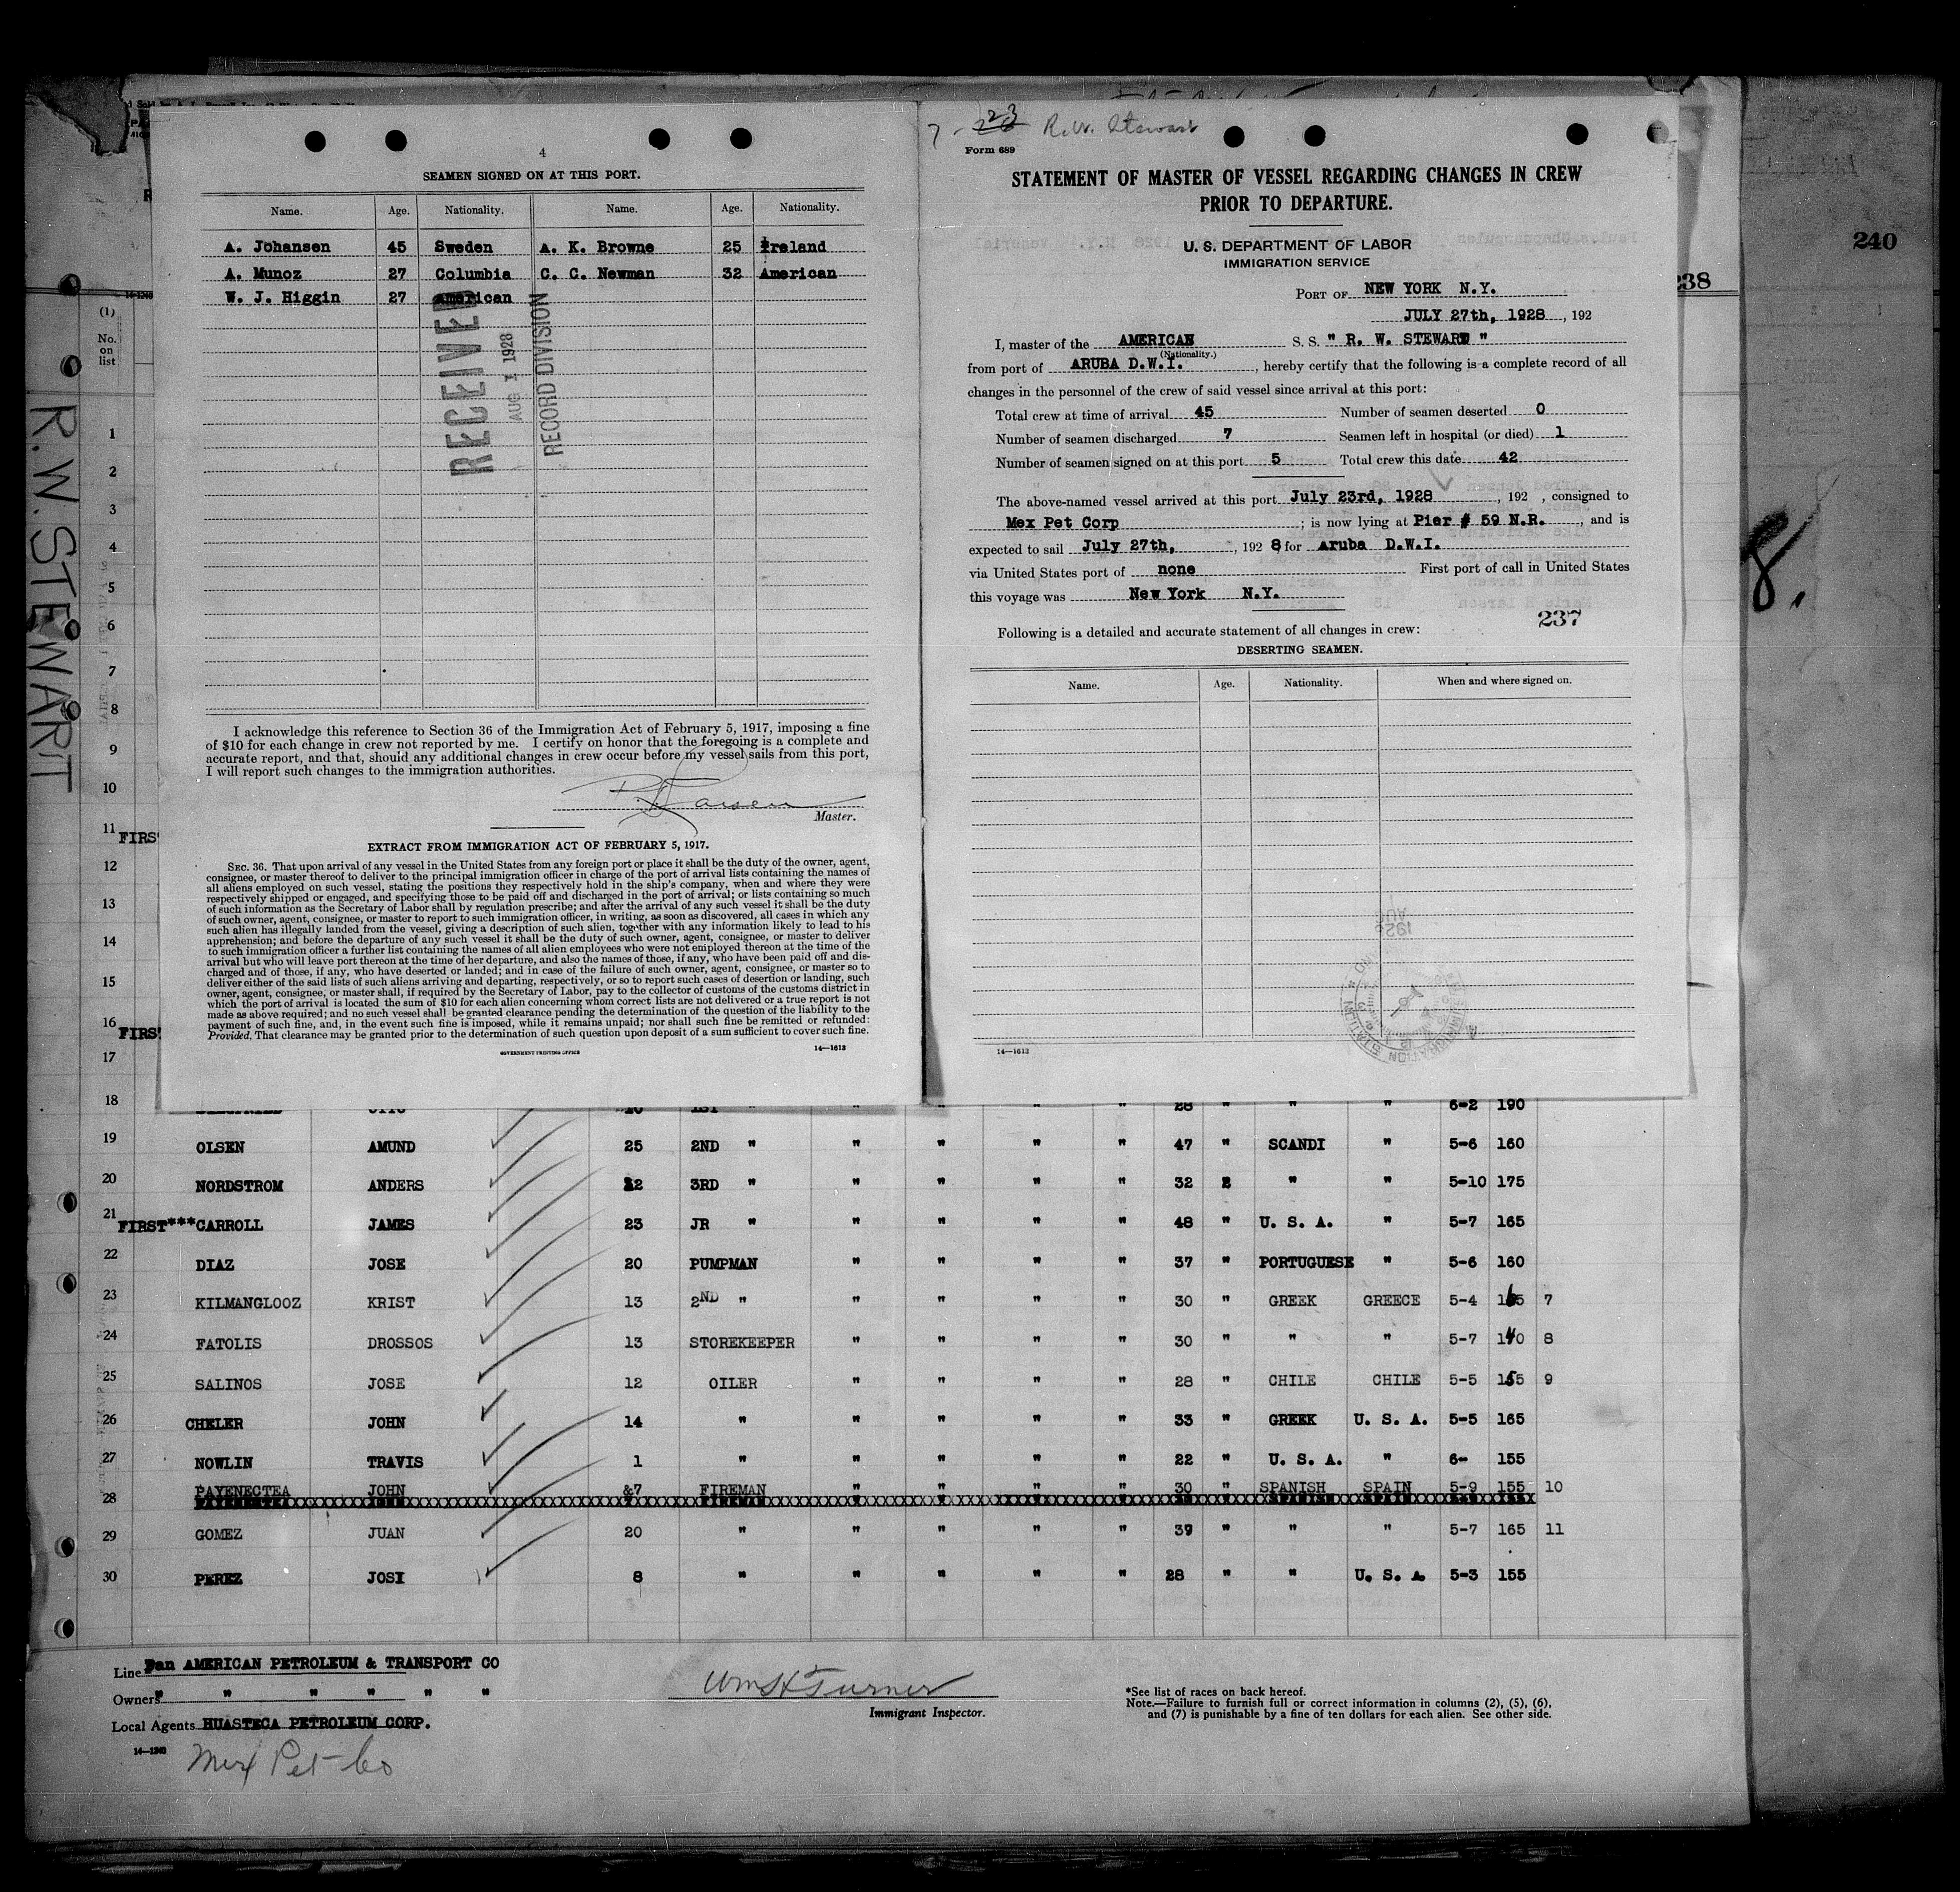 4
SEAMEN SIGNED ON AT THIS PORT.
Name. Age. Nationality. Name. Age. Nationality.
A. Johansen 45 Sweden A. K. Browne 25 Ireland
A. Munoz 27 Columbia C. C. Newman 32 American
W. J. Higgin 27 American
RECEIVED
AUG 1 1928
RECORD DIVISION
I acknowledge this reference to Section 36 of the Immigration Act of February 5, 1917, imposing a fine
of $10 for each change in crew not reported by me. I certify on honor that the foregoing is a complete and
accurate report, and that, should any additional changes in crew occur before my vessel sails from this port,
I will report such changes to the immigration authorities.
Master.
EXTRACT FROM IMMIGRATION ACT OF FEBRUARY 5, 1917.
SEC. 36. That upon arrival of any vessel in the United States from any foreign port or place it shall be the duty of the owner, agent,
consignee, or master thereof to deliver to the principal immigration officer in charge of the port of arrival lists containing the names of
all aliens employed on such vessel, stating the positions they respectively hold in the ship's company, when and where they were
respectively shipped or engaged, and specifying those to be paid off and discharged in the port of arrival; or lists containing so much
of such information as the Secretary of Labor shall by regulation prescribe; and after the arrival of any such vessel it shall be the duty
of such owner, agent, consignee, or master to report to such immigration officer, in writing, as soon as discovered, all cases in which any
such alien has illegally landed from the vessel, giving a description of such alien, together with any information likely to lead to his
apprehension; and before the departure of any such vessel it shall be the duty of such owner, agent, consignee, or master to deliver
to such immigration officer a further list containing the names of all alien employees who were not employed thereon at the time of the
arrival but who will leave port thereon at the time of her departure, and also the names of those, if any, who have been paid off and dis-
charged and of those, if any, who have deserted or landed; and in case of the failure of such owner, agent, consignee, or master so to
deliver either of the said lists of such aliens arriving and departing, respectively, or so to report such cases of desertion or landing, such
owner, agent, consignee, or master shall, if required by the Secretary of Labor, pay to the collector of customs of the customs district in
which the port of arrival is located the sum of $10 for each alien concerning whom correct lists are not delivered or a true report is not
made as above required; and no such vessel shall be granted clearance pending the determination of the question of the liability to the
payment of such fine, and, in the event such fine is imposed, while it remains unpaid; nor shall such fine be remitted or refunded:
Provided, That clearance may be granted prior to the determination of such question upon deposit of a sum sufficient to cover such fine.
GOVERNMENT PRINTING OFFICE 14—1613
7 - 223 R.W. Stewart
Form 689
STATEMENT OF MASTER OF VESSEL REGARDING CHANGES IN CREW
PRIOR TO DEPARTURE.
U. S. DEPARTMENT OF LABOR
IMMIGRATION SERVICE
PORT OF NEW YORK N.Y.
JULY 27th, 1928, 192
I, master of the AMERICAN S. S. " R. W. STEWART "
(Nationality.)
from port of ARUBA D.W.I., hereby certify that the following is a complete record of all
changes in the personnel of the crew of said vessel since arrival at this port:
Total crew at time of arrival 45 Number of seamen deserted 0
Number of seamen discharged 7 Seamen left in hospital (or died) 1
Number of seamen signed on at this port 5 Total crew this date 42
The above-named vessel arrived at this port July 23rd, 1928, 192 , consigned to
Mex Pet Corp ; is now lying at Pier # 59 N.R., and is
expected to sail July 27th, , 192 8, for Aruba D.W.I.
via United States port of none First port of call in United States
this voyage was New York N.Y.
237
Following is a detailed and accurate statement of all changes in crew:
DESERTING SEAMEN.
Name. Age. Nationality. When and where signed on.
14—1613
238
240
8.
R.W. STEWART
14-1240
(1)
No.
on
list
1
2
3
4
5
6
7
8
9
10
11 FIRS
12
13
14
15
16 FIRS
17
18 1ST " " " 28 " " " 6-2 190
19 OLSEN AMUND 25 2ND " " " " " 47 " SCANDI " 5-6 160
20 NORDSTROM ANDERS 12 3RD " " " " " 32 " " 5-10 175
21 FIRST***CARROLL JAMES 23 JR " " " " " 48 " U. S. A. " 5-7 165
22 DIAZ JOSE 20 PUMPMAN " " " " 37 " PORTUGUESE " 5-6 160
23 KILMANGLOOZ KRIST 13 2ND " " " " " 30 " GREEK GREECE 5-4 165 7
24 FATOLIS DROSSOS 13 STOREKEEPER " " " " 30 " " " 5-7 140 8
25 SALINOS JOSE 12 OILER " " " " 28 " CHILE CHILE 5-5 155 9
26 CHELER JOHN 14 " " " " " 33 " GREEK U. S. A. 5-5 165
27 NOWLIN TRAVIS 1 " " " " " 22 " U. S. A. " 6- 155
28 PAYENECTEA JOHN &7 FIREMAN " " " " 30 " SPANISH SPAIN 5-9 155 10
29 GOMEZ JUAN 20 " " " " " 39 " " " 5-7 165 11
30 PEREZ JOSI 8 " " " " " 28 " " U. S. A. 5-3 155
Line Pan AMERICAN PETROLEUM & TRANSPORT CO
Owners " " " " " "
Local Agents HUASTECA PETROLEUM CORP.
14—1240
Mex Pet Co
Wm H Turner
Immigrant Inspector.
*See list of races on back hereof.
Note.—Failure to furnish full or correct information in columns (2), (5), (6),
and (7) is punishable by a fine of ten dollars for each alien. See other side.